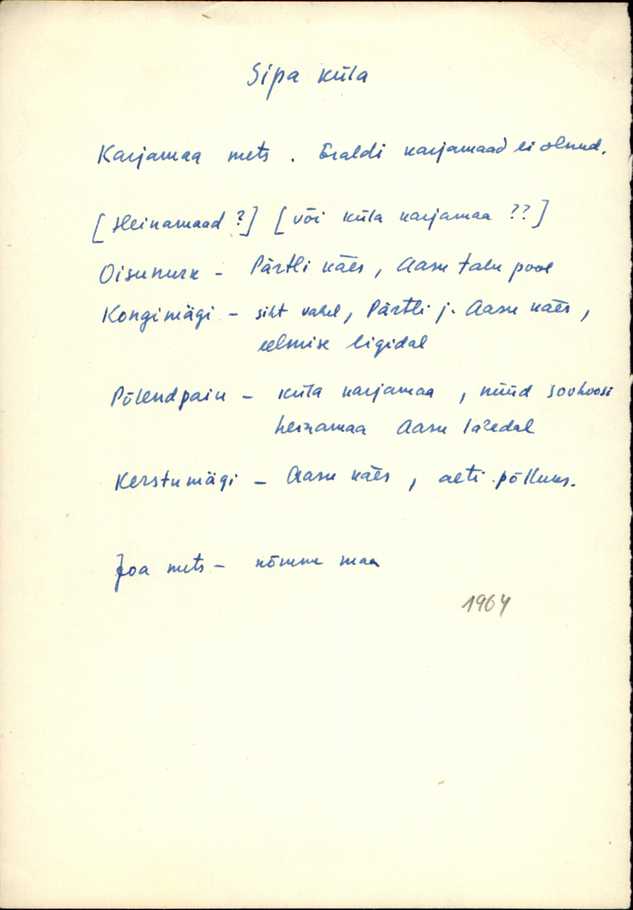 Sipa küla
Karjamaa mets. Eraldi karjamaad ei olnud.
[Heinamaad?] [või küla karjamaa ??]
Oisunurk - Pärtli käes, Aasu talu pool
Kongimägi - siht vahel, Pärtli j. Aasu käes,
eelmise ligidal
Põlendpain - küla karjamaa, nüüd sovhoosi
heinamaa Aasu lähedal
Kerstumägi - Aasu käes, aeti põlluks.
Joa mets - nõmme maa
1964